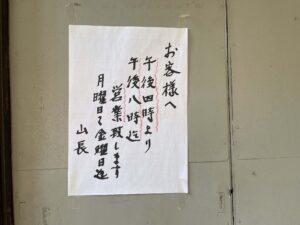 お客様へ
午後四時より
午後八時迄
営業致します
月曜日〜金曜日迄
山長